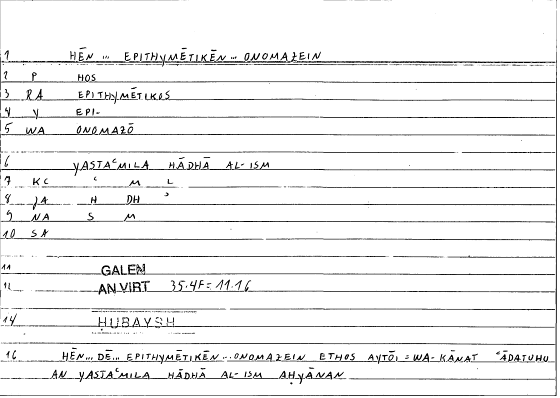 1 HĒN ... EPITHYMĒTIKĒN ... ONOMAZEIN
2 P HOS
3 RA EPITHYMĒTIKOS
4 Y EPI-
5 WA ONOMAZŌ
6 YASTAʿMILA HĀDHĀ AL-ISM
7 KC ʿ M L
8 JA H DH ʾ
9 NA S M
10 SA
11 GALEN
12 AN VIRT 35.4F = 11.16
14 ḤUBAYSH
16 HĒN ... DĒ ... EPITHYMĒTIKĒN ... ONOMAZEIN ETHOS AYTŌI = WA-KĀNAT ʿĀDATUHU
AN YASTAʿMILA HĀDHĀ AL-ISM AḤYĀNAN